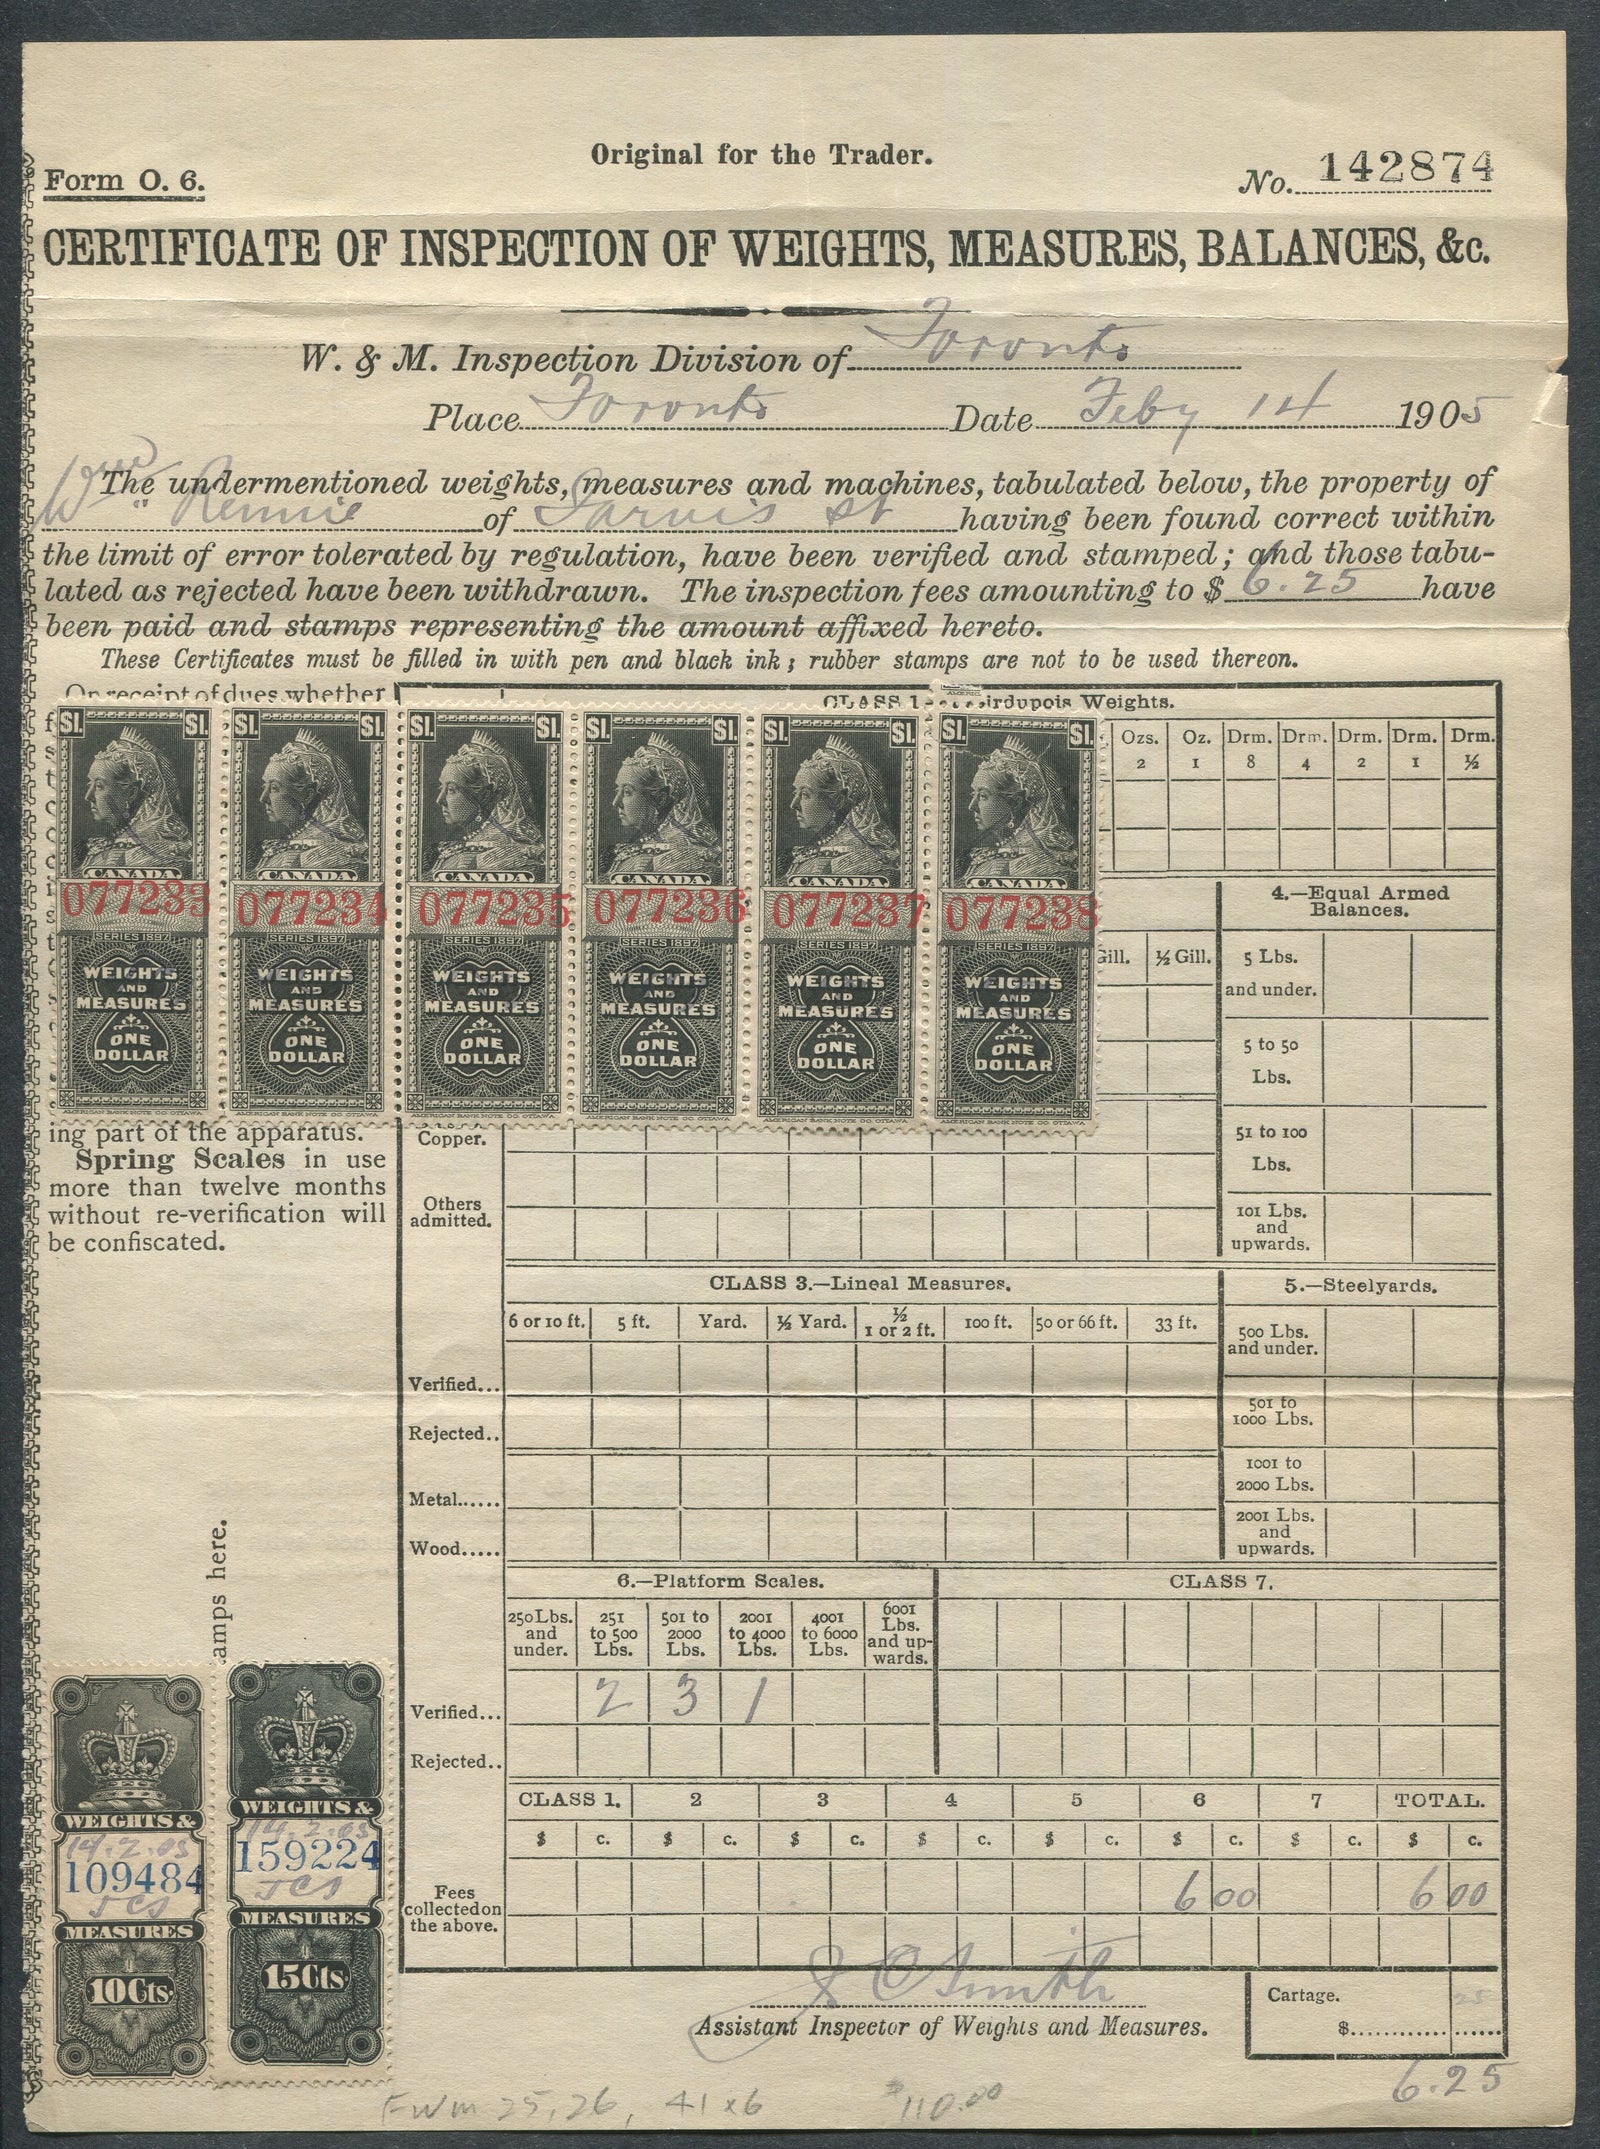 Original for the Trader.
Form O. 6.
No. 142874
CERTIFICATE OF INSPECTION OF WEIGHTS, MEASURES, BALANCES, &c.
W. & M. Inspection Division of Toronto
Place Toronto Date Feby 14 1905
The undermentioned weights, measures and machines, tabulated below, the property of
Wm Rennie of Jarvis St having been found correct within
the limit of error tolerated by regulation, have been verified and stamped; and those tabu-
lated as rejected have been withdrawn. The inspection fees amounting to $ 6.25 have
been paid and stamps representing the amount affixed hereto.
These Certificates must be filled in with pen and black ink; rubber stamps are not to be used thereon.
On receipt of dues whether
CLASS 1. Weights.
Ozs. 2 Oz. 1 Drm. 8 Drm. 4 Drm. 2 Drm. 1 Drm. ½
$1. $1. $1. $1. $1. $1. $1. $1. $1. $1. $1. $1.
CANADA CANADA CANADA CANADA CANADA CANADA
077233 077234 077235 077236 077237 077238
SERIES 1897 SERIES 1897 SERIES 1897 SERIES 1897 SERIES 1897 SERIES 1897
WEIGHTS AND MEASURES WEIGHTS AND MEASURES WEIGHTS AND MEASURES WEIGHTS AND MEASURES WEIGHTS AND MEASURES WEIGHTS AND MEASURES
ONE DOLLAR ONE DOLLAR ONE DOLLAR ONE DOLLAR ONE DOLLAR ONE DOLLAR
AMERICAN BANK NOTE CO. OTTAWA. AMERICAN BANK NOTE CO. OTTAWA. AMERICAN BANK NOTE CO. OTTAWA. AMERICAN BANK NOTE CO. OTTAWA. AMERICAN BANK NOTE CO. OTTAWA. AMERICAN BANK NOTE CO. OTTAWA.
Gill. ½ Gill.
4.—Equal Armed
Balances.
5 Lbs.
and under.
5 to 50
Lbs.
51 to 100
Lbs.
101 Lbs.
and
upwards.
ing part of the apparatus.
Spring Scales in use
more than twelve months
without re-verification will
be confiscated.
Copper.
Others
admitted.
CLASS 3.—Lineal Measures.
6 or 10 ft. 5 ft. Yard. ½ Yard. ½ 1 or 2 ft. 100 ft. 50 or 66 ft. 33 ft.
Verified...
Rejected..
Metal......
Wood.....
5.—Steelyards.
500 Lbs.
and under.
501 to
1000 Lbs.
1001 to
2000 Lbs.
2001 Lbs.
and
upwards.
6.—Platform Scales.
CLASS 7.
250 Lbs. and under. 251 to 500 Lbs. 501 to 2000 Lbs. 2001 to 4000 Lbs. 4001 to 6000 Lbs. 6001 Lbs. and up-wards.
Verified... 2 3 1
Rejected..
CLASS 1. 2 3 4 5 6 7 TOTAL.
$ c. $ c. $ c. $ c. $ c. $ c. $ c. $ c.
Fees
collected on
the above.
6 00 6 00
amps here.
WEIGHTS &
14.2.05
109484
JCS
MEASURES
10 Cts.
WEIGHTS &
14.2.05
159224
JCS
MEASURES
15 Cts.
J C Smith
Assistant Inspector of Weights and Measures.
Cartage.
$ 25
6.25
FWM 25, 26, 41 x 6 $110.00